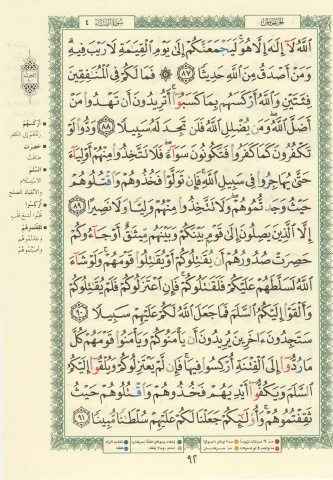 ٤
سورة النساء
الجزء الخامس
ٱللَّهُ لَآ إِلَـٰهَ إِلَّا هُوَ ۚ لَيَجْمَعَنَّكُمْ إِلَىٰ يَوْمِ ٱلْقِيَـٰمَةِ لَا رَيْبَ فِيهِ ۗ
وَمَنْ أَصْدَقُ مِنَ ٱللَّهِ حَدِيثًا ٨٧ ۞ فَمَا لَكُمْ فِى ٱلْمُنَـٰفِقِينَ
فِئَتَيْنِ وَٱللَّهُ أَرْكَسَهُم بِمَا كَسَبُوٓا۟ ۚ أَتُرِيدُونَ أَن تَهْدُوا۟ مَنْ
أَضَلَّ ٱللَّهُ ۖ وَمَن يُضْلِلِ ٱللَّهُ فَلَن تَجِدَ لَهُۥ سَبِيلًا ٨٨ وَدُّوا۟ لَوْ
تَكْفُرُونَ كَمَا كَفَرُوا۟ فَتَكُونُونَ سَوَآءً ۖ فَلَا تَتَّخِذُوا۟ مِنْهُمْ أَوْلِيَآءَ
حَتَّىٰ يُهَاجِرُوا۟ فِى سَبِيلِ ٱللَّهِ ۚ فَإِن تَوَلَّوْا۟ فَخُذُوهُمْ وَٱقْتُلُوهُمْ
حَيْثُ وَجَدتُّمُوهُمْ ۖ وَلَا تَتَّخِذُوا۟ مِنْهُمْ وَلِيًّا وَلَا نَصِيرًا ٨٩
إِلَّا ٱلَّذِينَ يَصِلُونَ إِلَىٰ قَوْمٍۭ بَيْنَكُمْ وَبَيْنَهُم مِّيثَـٰقٌ أَوْ جَآءُوكُمْ
حَصِرَتْ صُدُورُهُمْ أَن يُقَـٰتِلُوكُمْ أَوْ يُقَـٰتِلُوا۟ قَوْمَهُمْ ۚ وَلَوْ شَآءَ
ٱللَّهُ لَسَلَّطَهُمْ عَلَيْكُمْ فَلَقَـٰتَلُوكُمْ ۚ فَإِنِ ٱعْتَزَلُوكُمْ فَلَمْ يُقَـٰتِلُوكُمْ
وَأَلْقَوْا۟ إِلَيْكُمُ ٱلسَّلَمَ فَمَا جَعَلَ ٱللَّهُ لَكُمْ عَلَيْهِمْ سَبِيلًا ٩٠
سَتَجِدُونَ ءَاخَرِينَ يُرِيدُونَ أَن يَأْمَنُوكُمْ وَيَأْمَنُوا۟ قَوْمَهُمْ كُلَّ
مَا رُدُّوٓا۟ إِلَى ٱلْفِتْنَةِ أُرْكِسُوا۟ فِيهَا ۚ فَإِن لَّمْ يَعْتَزِلُوكُمْ وَيُلْقُوٓا۟ إِلَيْكُمُ
ٱلسَّلَمَ وَيَكُفُّوٓا۟ أَيْدِيَهُمْ فَخُذُوهُمْ وَٱقْتُلُوهُمْ حَيْثُ
ثَقِفْتُمُوهُمْ ۚ وَأُو۟لَـٰٓئِكُمْ جَعَلْنَا لَكُمْ عَلَيْهِمْ سُلْطَـٰنًا مُّبِينًا ٩١
أركسهم
حصرت
ضاقت
السلم
الاستسلام
أركسوا
ثقفتموهم
٩٢